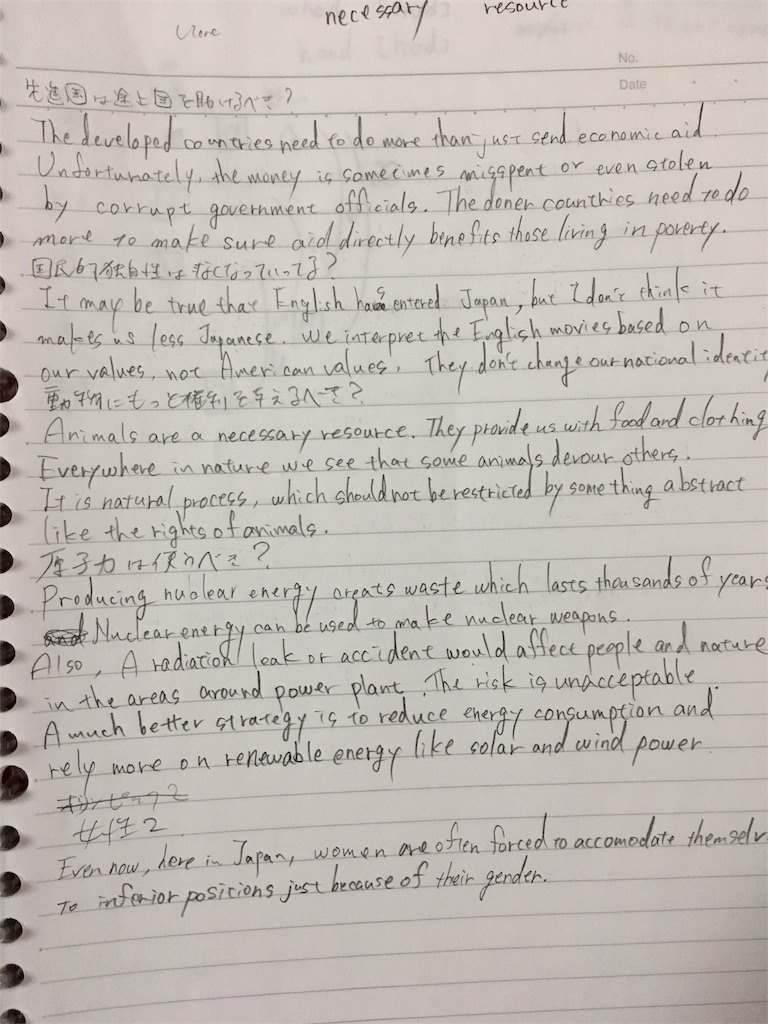 necessary resource
No.
Date
先進国は途上国を助けるべき?
The developed countries need to do more than just send economic aid.
Unfortunately, the money is sometimes misspent or even stolen
by corrupt government officials. The doner countries need to do
more to make sure aid directly benefits those living in poverty.
国民的独自性はなくなっていってる?
It may be true that English has entered Japan, but I don't think it
makes us less Japanese. We interpret the English movies based on
our values, not American values. They don't change our national identit
動物にもっと権利を与えるべき?
Animals are a necessary resource. They provide us with food and clothing
Everywhere in nature we see that some animals devour others.
It is natural process, which should not be restricted by something abstract
like the rights of animals.
原子力は使うべき?
Producing nuclear energy creats waste which lasts thousands of years
Nuclear energy can be used to make nuclear weapons.
Also, A radiation leak or accident would affect people and nature
in the areas around power plant. The risk is unacceptable.
A much better strategy is to reduce energy consumption and
rely more on renewable energy like solar and wind power.
オリンピック2
女性2
Even now, here in Japan, women are often forced to accomodate themselv
to inferior positions just because of their gender.